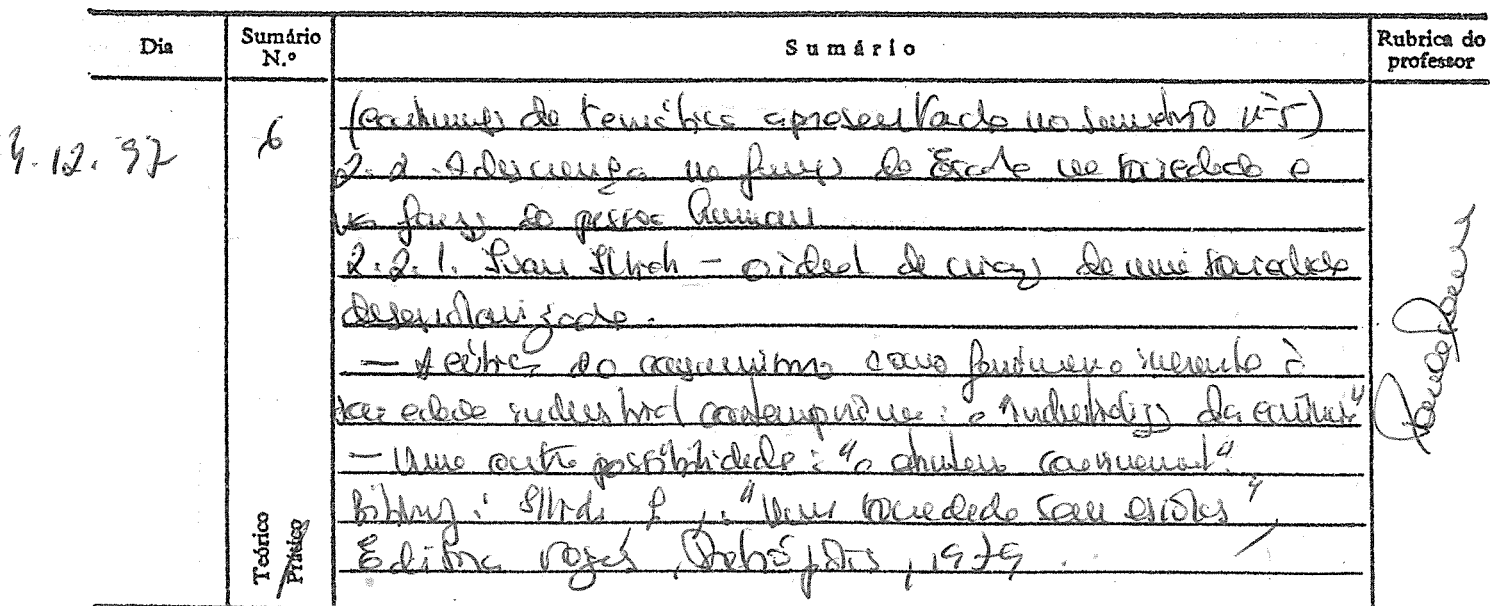 Dia
Sumário N.º
Sumário
Rubrica do professor
4.12.97
6
(continuação da temática apresentada no sumário nº5)
2.2. A descrença na função da Escola na sociedade e
na função da pessoa humana
2.2.1. Ivan Illich – o ideal de criação de uma sociedade
desescolarizada.
— A crítica do consumismo como fenómeno inerente à
sociedade industrial contemporânea: a "industrialização da
— Uma outra possibilidade: "o
Bibliog.: Illich, I., "Uma sociedade sem escolas",
Editora Vozes, Petrópolis, 1979.
Teórico
Prático